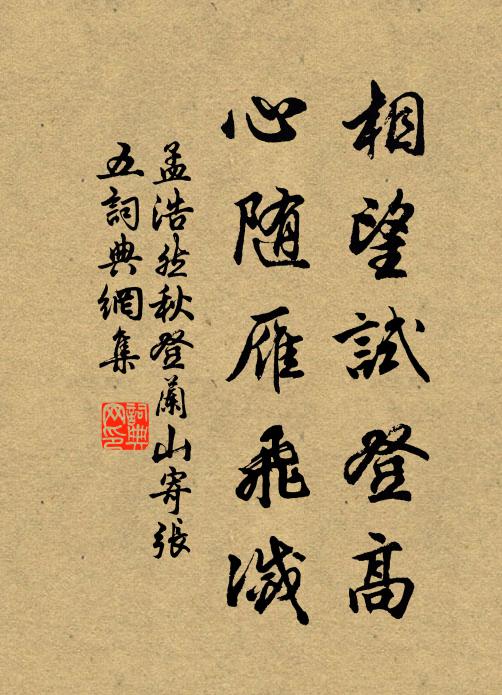 相望試登高
心随雁飛滅
孟浩然秋登蘭山寄張
五詞典網集
詞典網印